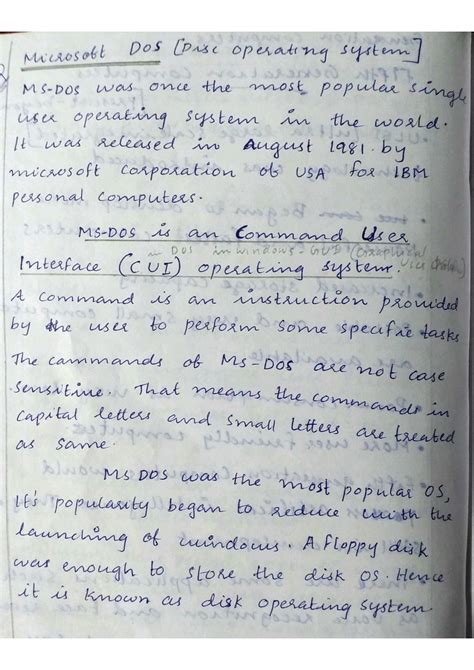 Microsoft DOS [Disc operating system]
MS-DOS was once the most popular single
user operating system in the world.
It was released in August 1981. by
microsoft corporation of USA for IBM
personal computers.
MS-DOS is an Command User
in DOS in windows - GUI (Graphical
User
Interface (CUI) operating system.
A command is an instruction provided
by the user to perform some specific tasks
The commands of MS-DOS are not case
sensitive. That means the commands in
capital letters and small letters are treated
as same.
MS DOS was the most popular OS,
It's popularity began to reduce with the
launching of windows. A floppy disk
was enough to store the disk OS. Hence
it is known as disk operating system.